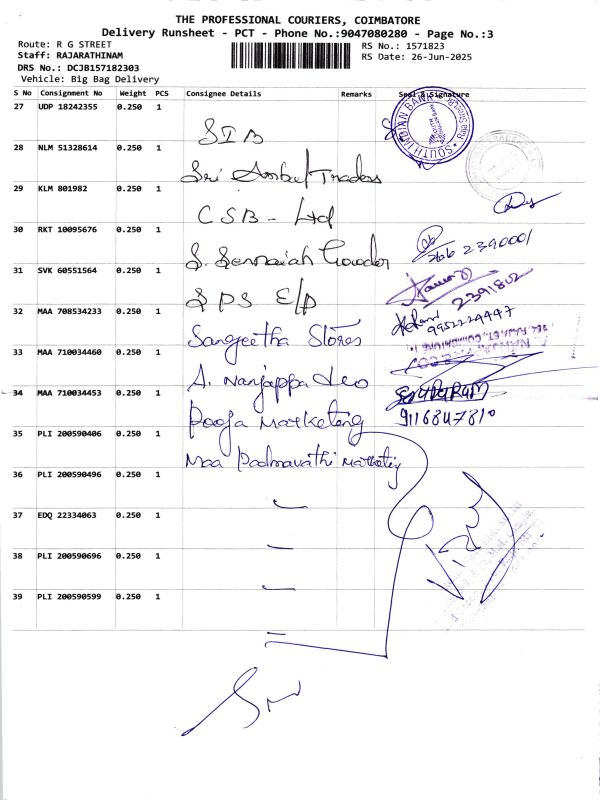 THE PROFESSIONAL COURIERS, COIMBATORE
Delivery Runsheet - PCT - Phone No.:9047080280 - Page No.:3
Route: R G STREET
RS No.: 1571823
Staff: RAJARATHINAM
RS Date: 26-Jun-2025
DRS No.: DCJB157182303
Vehicle: Big Bag Delivery
S No Consignment No Weight PCS Consignee Details Remarks Seal & Signature
27 UDP 18242355 0.250 1 SIB
SOUTH INDIAN BANK
28 NLM 51328614 0.250 1 Sri Ambal Traders
29 KLM 801982 0.250 1 CSB - Ltd
30 RKT 10095676 0.250 1 S. Sennaiah Gowder
2390001
31 SVK 60551564 0.250 1 SPS E/P
2391802
32 MAA 708534233 0.250 1 Sangeetha Stores
9952229997
33 MAA 710034460 0.250 1 A. Nanjappa &co
34 MAA 710034453 0.250 1 Pooja Marketing
9116847810
35 PLI 200590406 0.250 1 Maa Padmavathi Marketing
36 PLI 200590496 0.250 1
37 EDQ 22334063 0.250 1
38 PLI 200590696 0.250 1
39 PLI 200590599 0.250 1